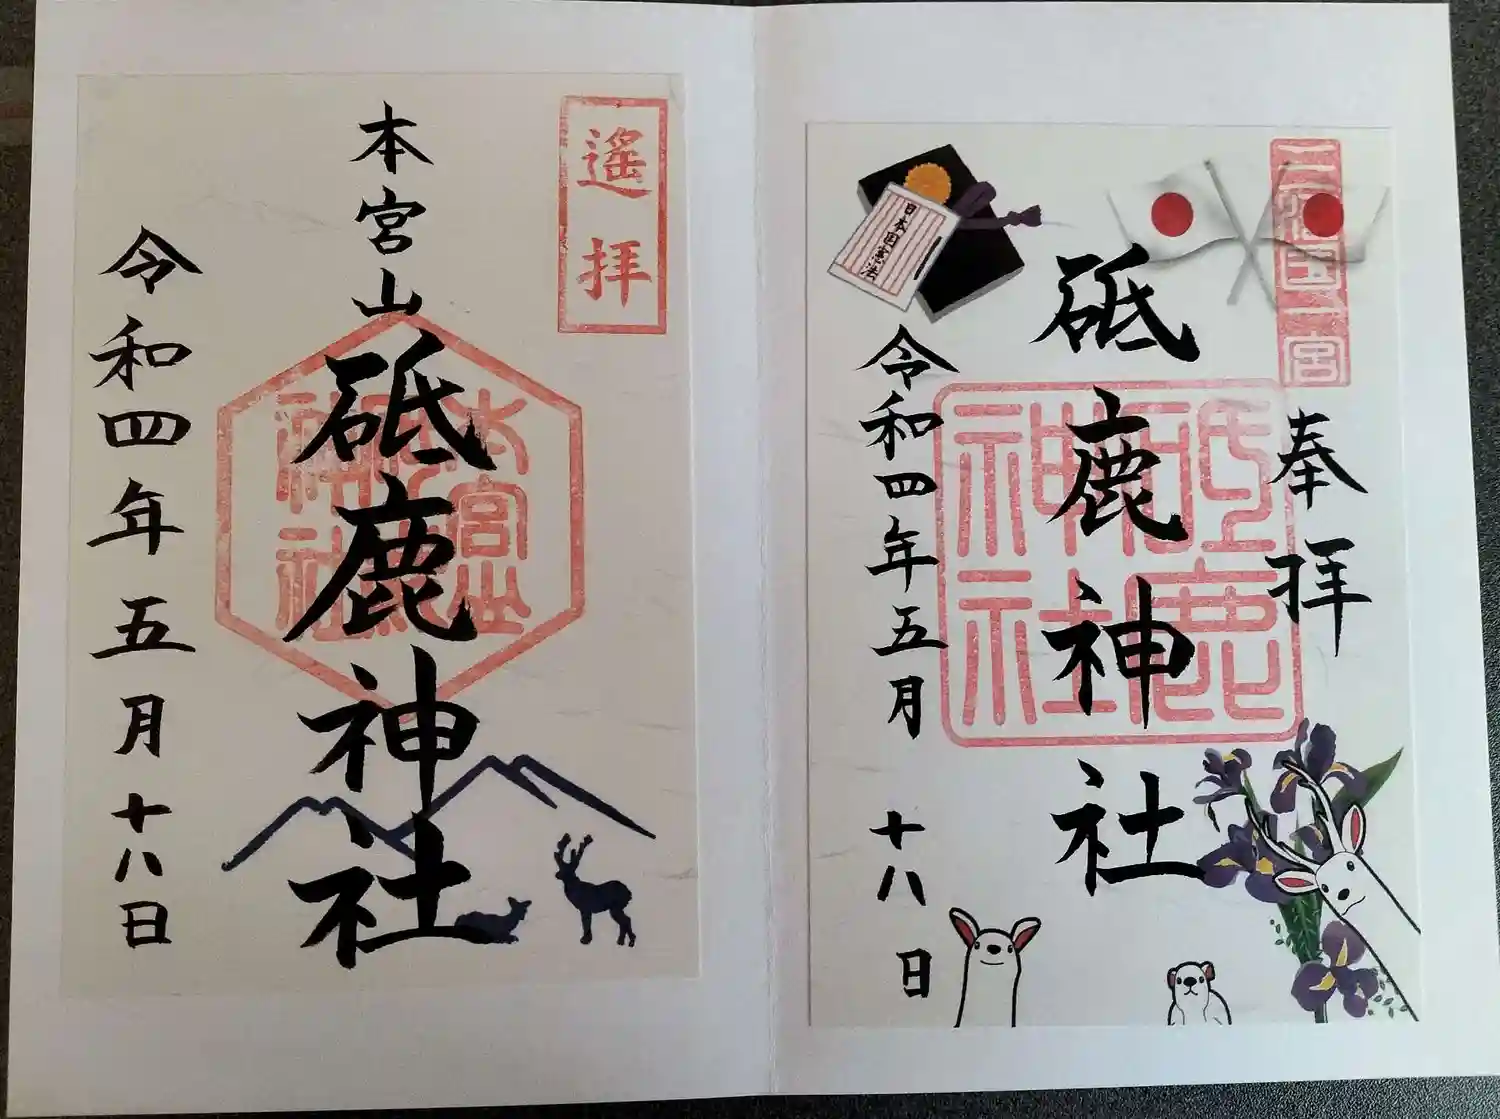 奉拝
三河国一宮
砥鹿神社
砥鹿神社
令和四年五月十八日
日本国憲法
遙拝
本宮山砥鹿神社
令和四年五月十八日